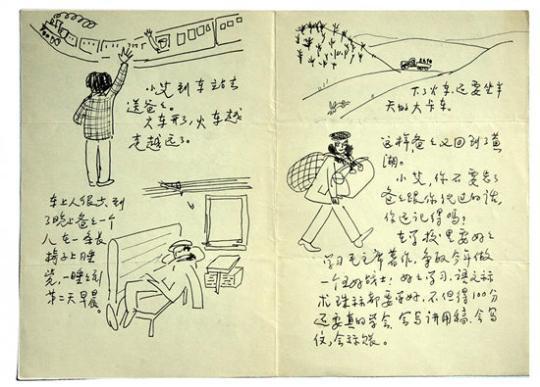 小艾到车站去
送爸爸。
火车开了,火车越
走越远了。
车上人很少,到
了晚上爸爸一个
人在一条长
椅子上睡
觉,一睡睡到
第二天早晨。
下了火车还要坐半
天的大卡车。
这样爸爸又回到了黄
湖。
小艾,你不要忘了
爸爸跟你说过的话,
你还记得吗?
在学校里要好好
学习毛主席著作,争取今年做
一个五好战士!好好学习,语文、算
术、珠算都要学好,不但得100分
还要真的学会,会写讲用稿,会写
信,会算账。